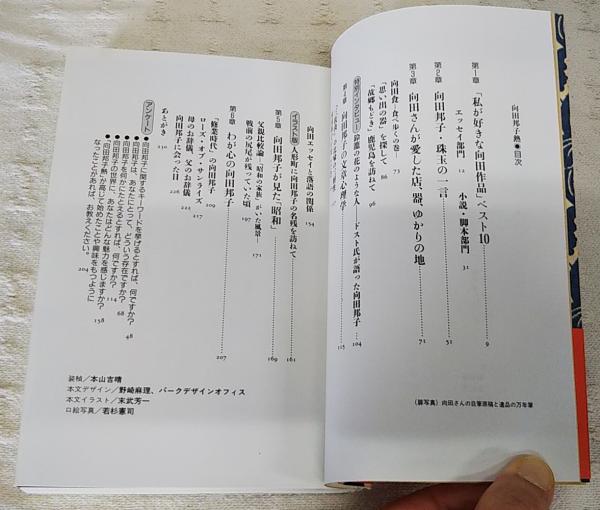 向田邦子熱●目次
第1章 「私が好きな向田作品」ベスト10 9
エッセイ部門 12 小説・脚本部門 31
第2章 向田邦子・珠玉の一言 51
第3章 向田さんが愛した店、器、ゆかりの地 71
向田食べ歩くの巻 73
「思い出の器」を探して 86
「故郷もどき」鹿児島を訪ねて 96
特別インタビュー 鈴蘭の花のような人——ドスト氏が語った向田邦子 104
第4章 向田邦子の文章心理学 115
向田エッセイと落語の関係 154
イラスト版 人形町に向田邦子の名残を訪ねて 161
第5章 向田邦子が見た「昭和」 169
父親比較論「昭和の家族」がいた風景 171
戦前の尻尾が残っていた頃 197
第6章 わが心の向田邦子 207
「修業時代」の向田邦子 209
ローズ・オブ・サンライズ 217
母のお辞儀、父のお辞儀 224
向田邦子に会った日 226
あとがき 230
アンケート
●向田邦子に関するキーワードを挙げるとすれば、何ですか? 48
●向田邦子は、あなたにとって、どういう存在ですか? 68
●向田邦子を何かにたとえるとすれば、何ですか? 114
●向田邦子の世界に、あなたはどんな魅力を感じますか? 158
●「向田邦子熱」が高じて始めたことや興味をもつように
なったことがあれば、お教えください。 204
装幀/本山吉晴
本文デザイン/野崎麻理、パークデザインオフィス
本文イラスト/末武芳一
口絵写真/若杉憲司
(扉写真) 向田さんの自筆原稿と遺品の万年筆